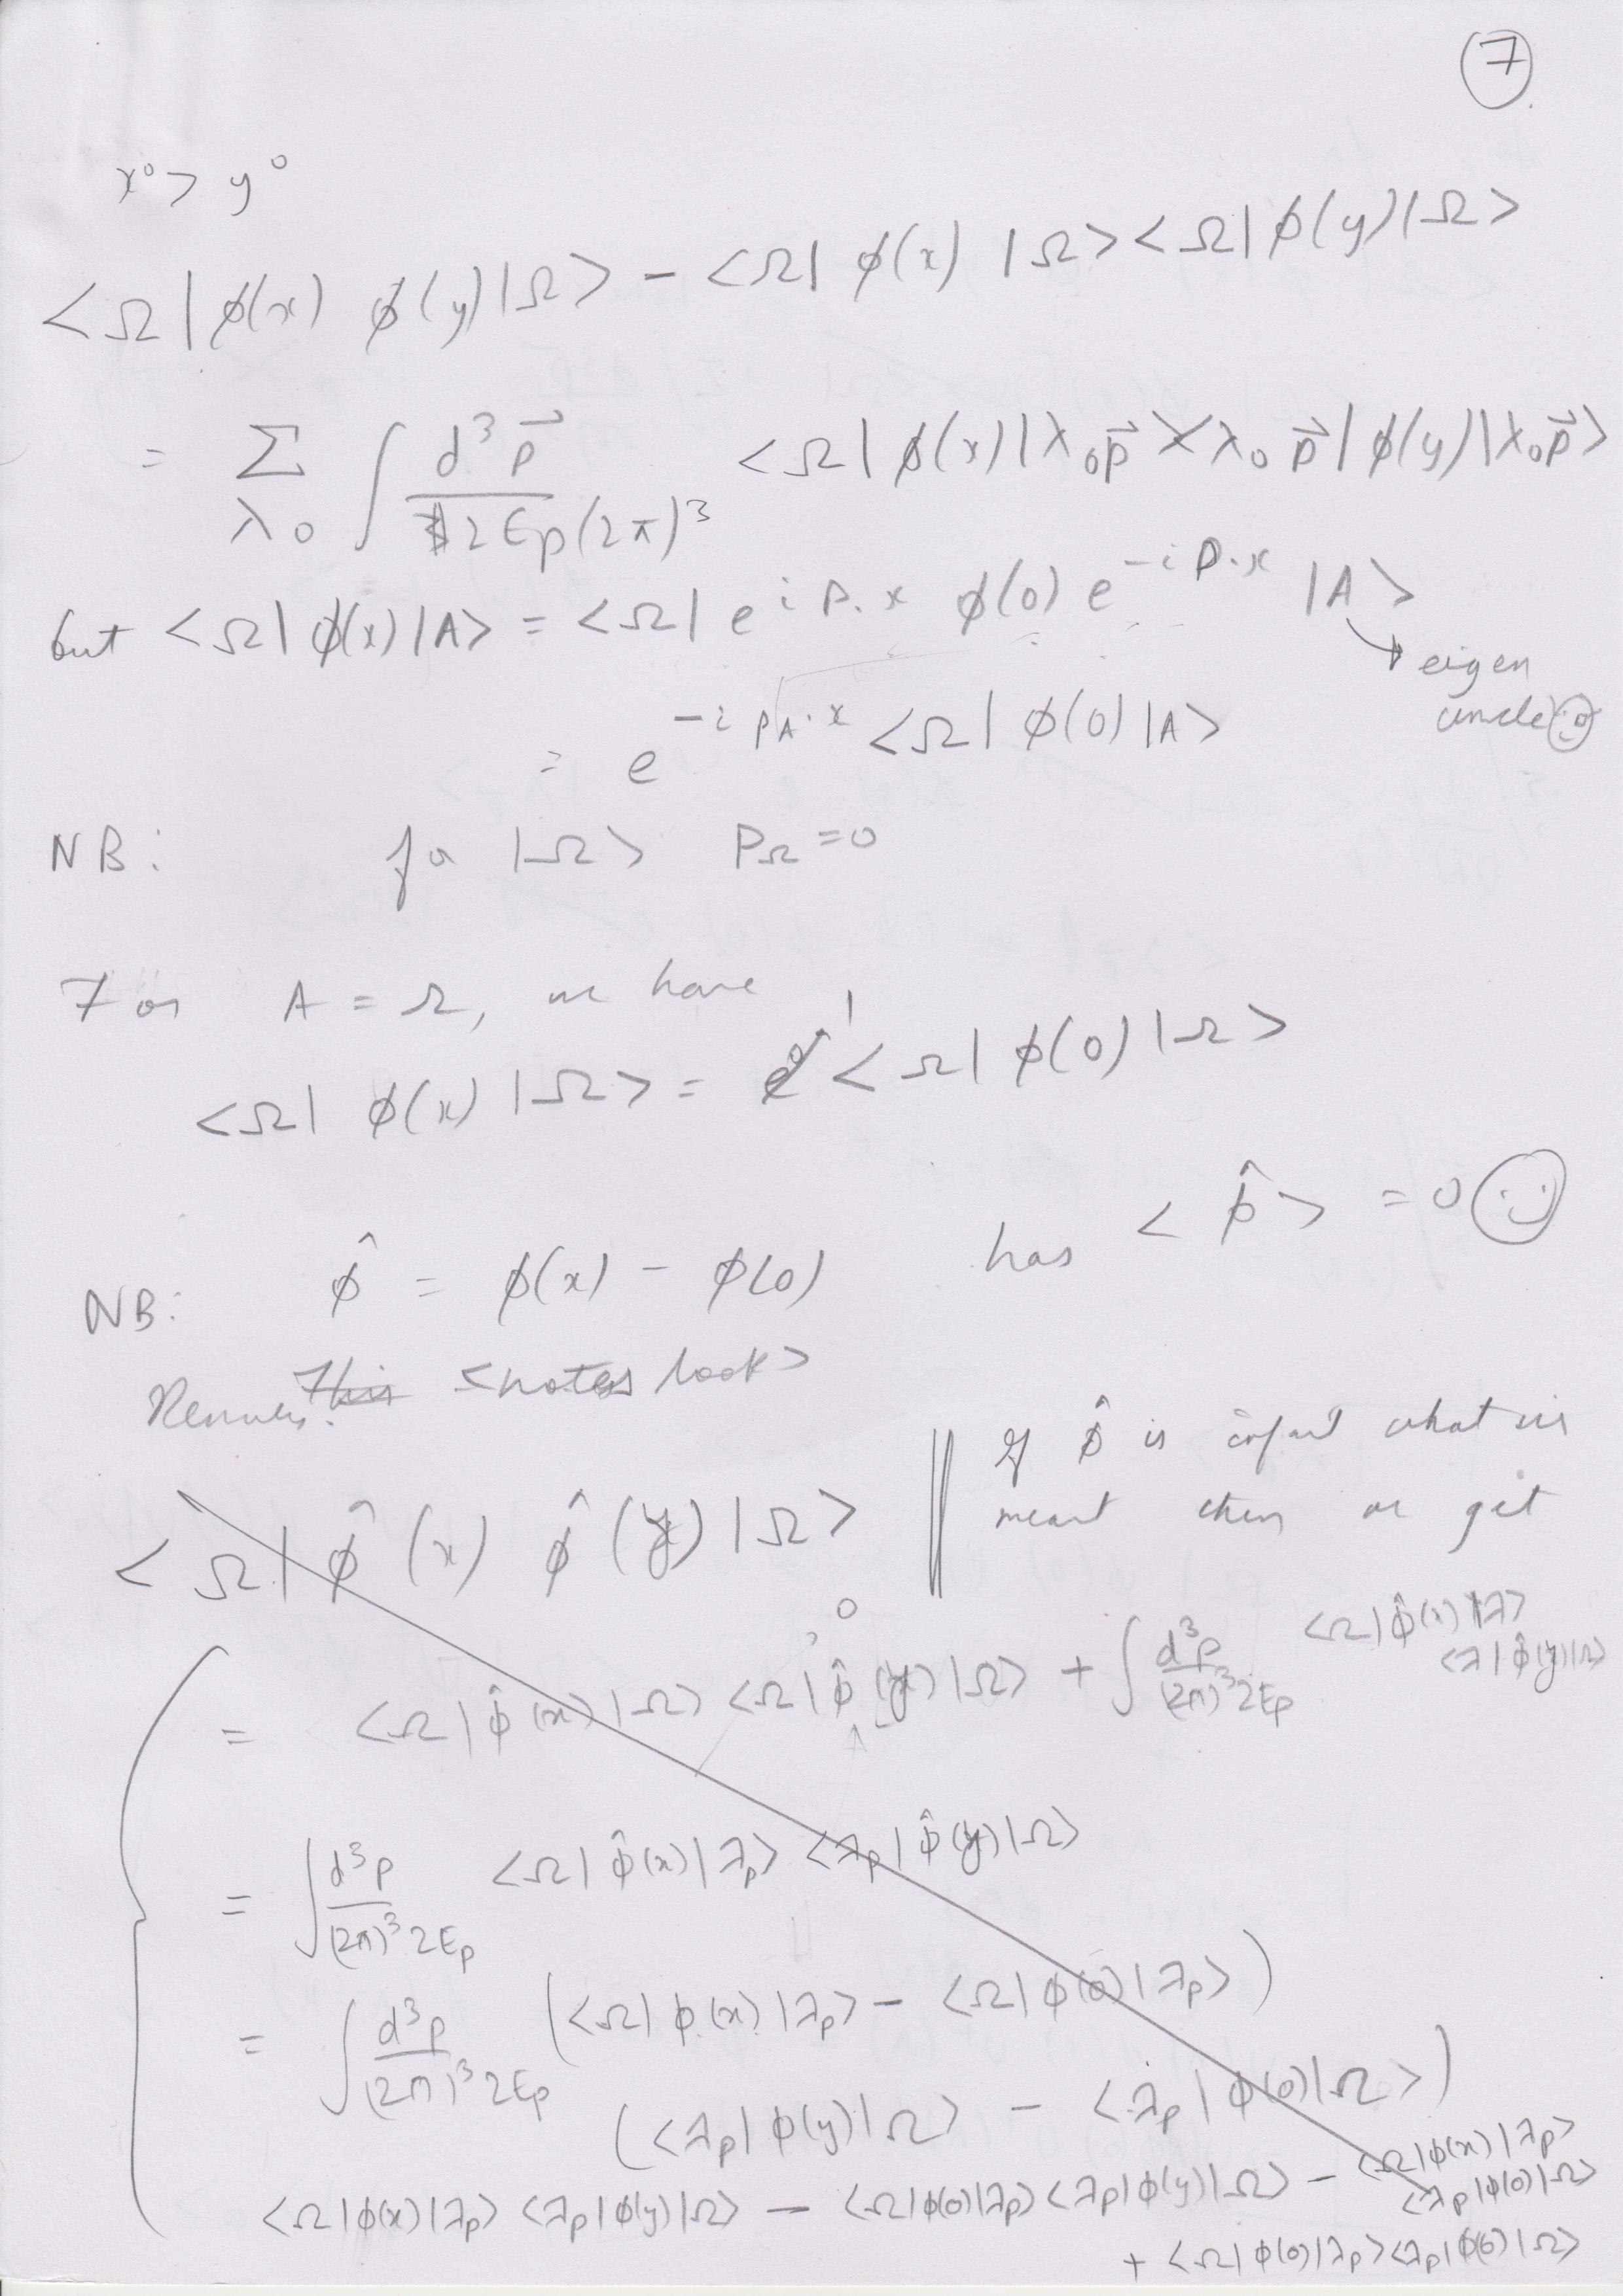 7
x⁰ > y⁰
<Ω| ϕ(x) ϕ(y) |Ω> - <Ω| ϕ(x) |Ω><Ω| ϕ(y) |Ω>
= Σ_λ₀ ∫ d³p⃗ / 2E_p(2π)³ <Ω| ϕ(x) |λ₀p⃗><λ₀p⃗| ϕ(y) |λ₀p⃗>
but <Ω| ϕ(x) |A> = <Ω| e^{iP·x} ϕ(0) e^{-iP·x} |A>
→ eigen
= e^{-ip_A·x} <Ω| ϕ(0) |A>
NB: for |Ω> P_Ω = 0
For A = Ω, we have
<Ω| ϕ(x) |Ω> = e⁰ 1 <Ω| ϕ(0) |Ω>
NB: ϕ̂ = ϕ(x) - ϕ(0) has <ϕ̂> = 0
This <notes look>
<Ω| ϕ̂(x) ϕ̂(y) |Ω>
If ϕ̂ is infact what is
meant then we get
= <Ω| ϕ̂(x) |Ω> <Ω| ϕ̂(y) |Ω> 0 + ∫ d³p / (2π)³2E_p <Ω| ϕ̂(x) |λ>
<λ| ϕ̂(y) |Ω>
= ∫ d³p / (2π)³2E_p <Ω| ϕ̂(x) |λ_p> <λ_p| ϕ̂(y) |Ω>
= ∫ d³p / (2π)³2E_p (<Ω| ϕ(x) |λ_p> - <Ω| ϕ(0) |λ_p>)
(<λ_p| ϕ(y) |Ω> - <λ_p| ϕ(0) |Ω>)
<Ω| ϕ(x) |λ_p> <λ_p| ϕ(y) |Ω> - <Ω| ϕ(0) |λ_p> <λ_p| ϕ(y) |Ω> - <Ω| ϕ(x) |λ_p>
<λ_p| ϕ(0) |Ω>
+ <Ω| ϕ(0) |λ_p> <λ_p| ϕ(0) |Ω>